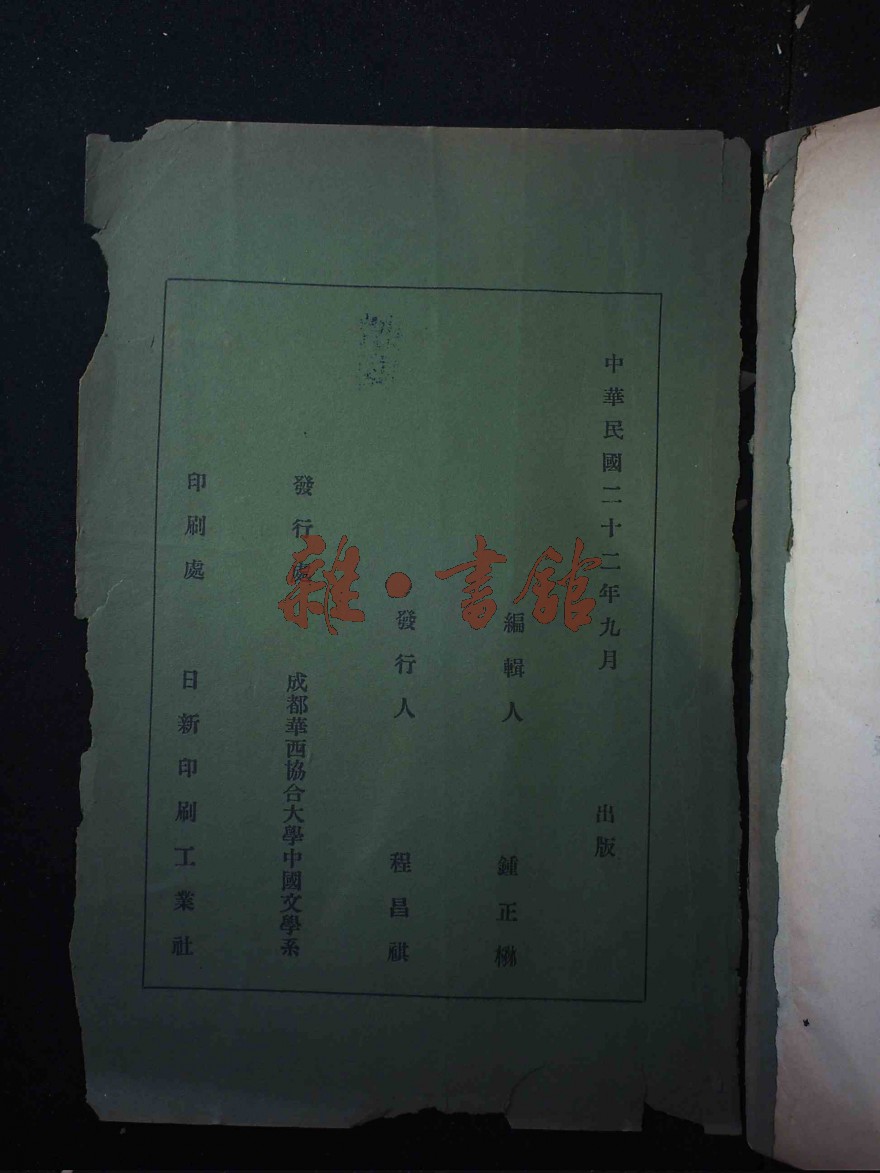 中華民國二十二年九月 出版
編輯人 鍾正楙
發行人 程昌祺
發行處 成都華西協合大學中國文學系
印刷處 日新印刷工業社
雜·書館